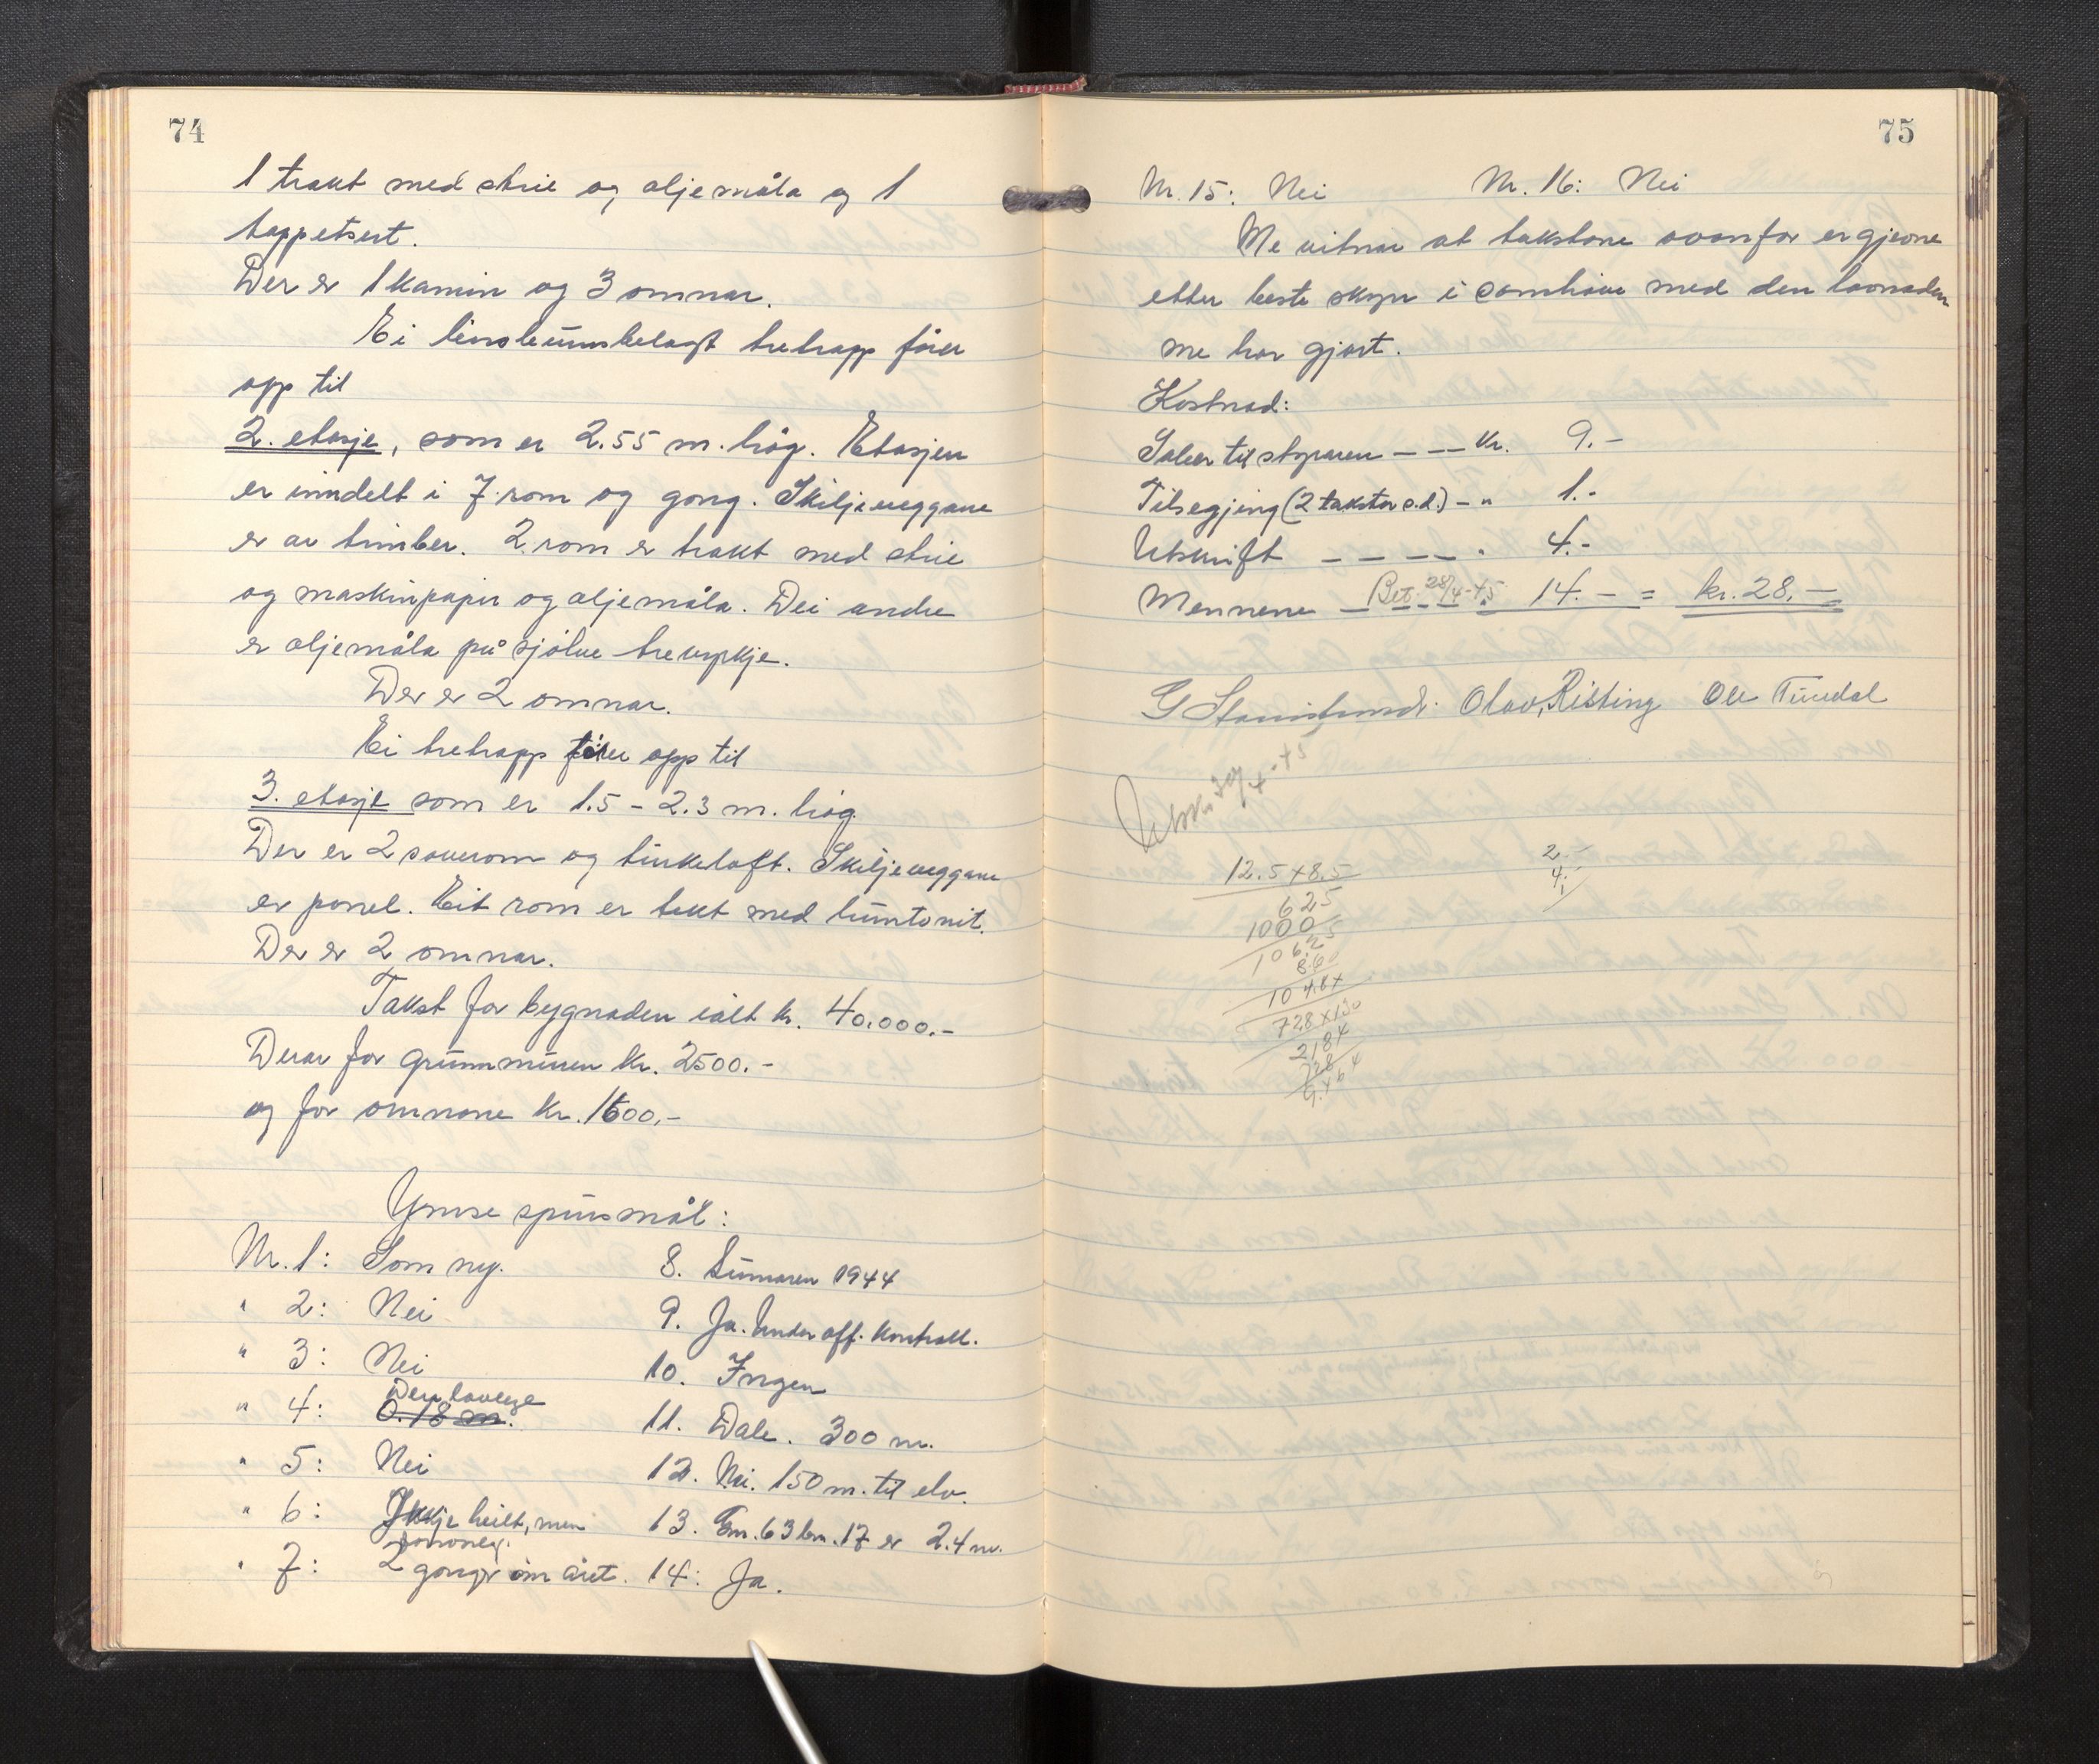 74
1 trekt med strie og oljemåla og 1
tappetsert.
Der er 1 kamin og 3 omnar.
Ei linoleumsbelagt tretrapp förer
opp til
2. etasje, som er 2.55 m. høg. Etasjen
er inndelt i 7 rom og gong. Skiljeveggane
er av timber. 2 rom er trekt med strie
og maskinpapir og oljemåla. Dei andre
er oljemåla på sjölve trevyrkje.
Der er 2 omnar.
Ei tretrapp förer opp til
3. etasje som er 1.5 - 2.3 m. høg.
Der er 2 soverom og turkeloft. Skiljeveggane
er panel. Eit rom er tekt med huntonit.
Der er 2 omnar.
Takst for bygnaden ialt kr. 40.000.-
Derav for grunnmuren kr. 2500.-
og for omnane kr. 1600,-
Ymse spursmål:
Nr. 1: Som ny.
" 2: Nei
" 3: Nei
" 4: Den lovlege
0.18 m.
" 5: Nei
" 6: Ikkje heilt, men
" 7: 2 gonger om året.
8. Sumaren 1944
9. Ja. Under off. kontroll.
10. Ingen
11. Dale. 300 m.
12. Nei. 150 m. til elv.
13. Gn. 63 bn. 17 er 2.4 m.
14: Ja.
75
Nr. 15: Nei Nr. 16: Nei
Me vitnar at takstane ovanfor er gjevne
etter beste skyn i samhøve med den lovnaden
me har gjort.
Kostnad:
Salær til styraren - - - kr. 9.-
Tilsegjing (2 takstar s.d.) - " 1.-
Utskrift - - - - - " 4.-
Mennene - - - - " 14.- = kr. 28.-
Bet. 28/4-45
Olav Risting Ole Tveedal
12.5 x 8.5
625
1000
106.25
8.60
728 x 130
2184
728
2.-
4.-